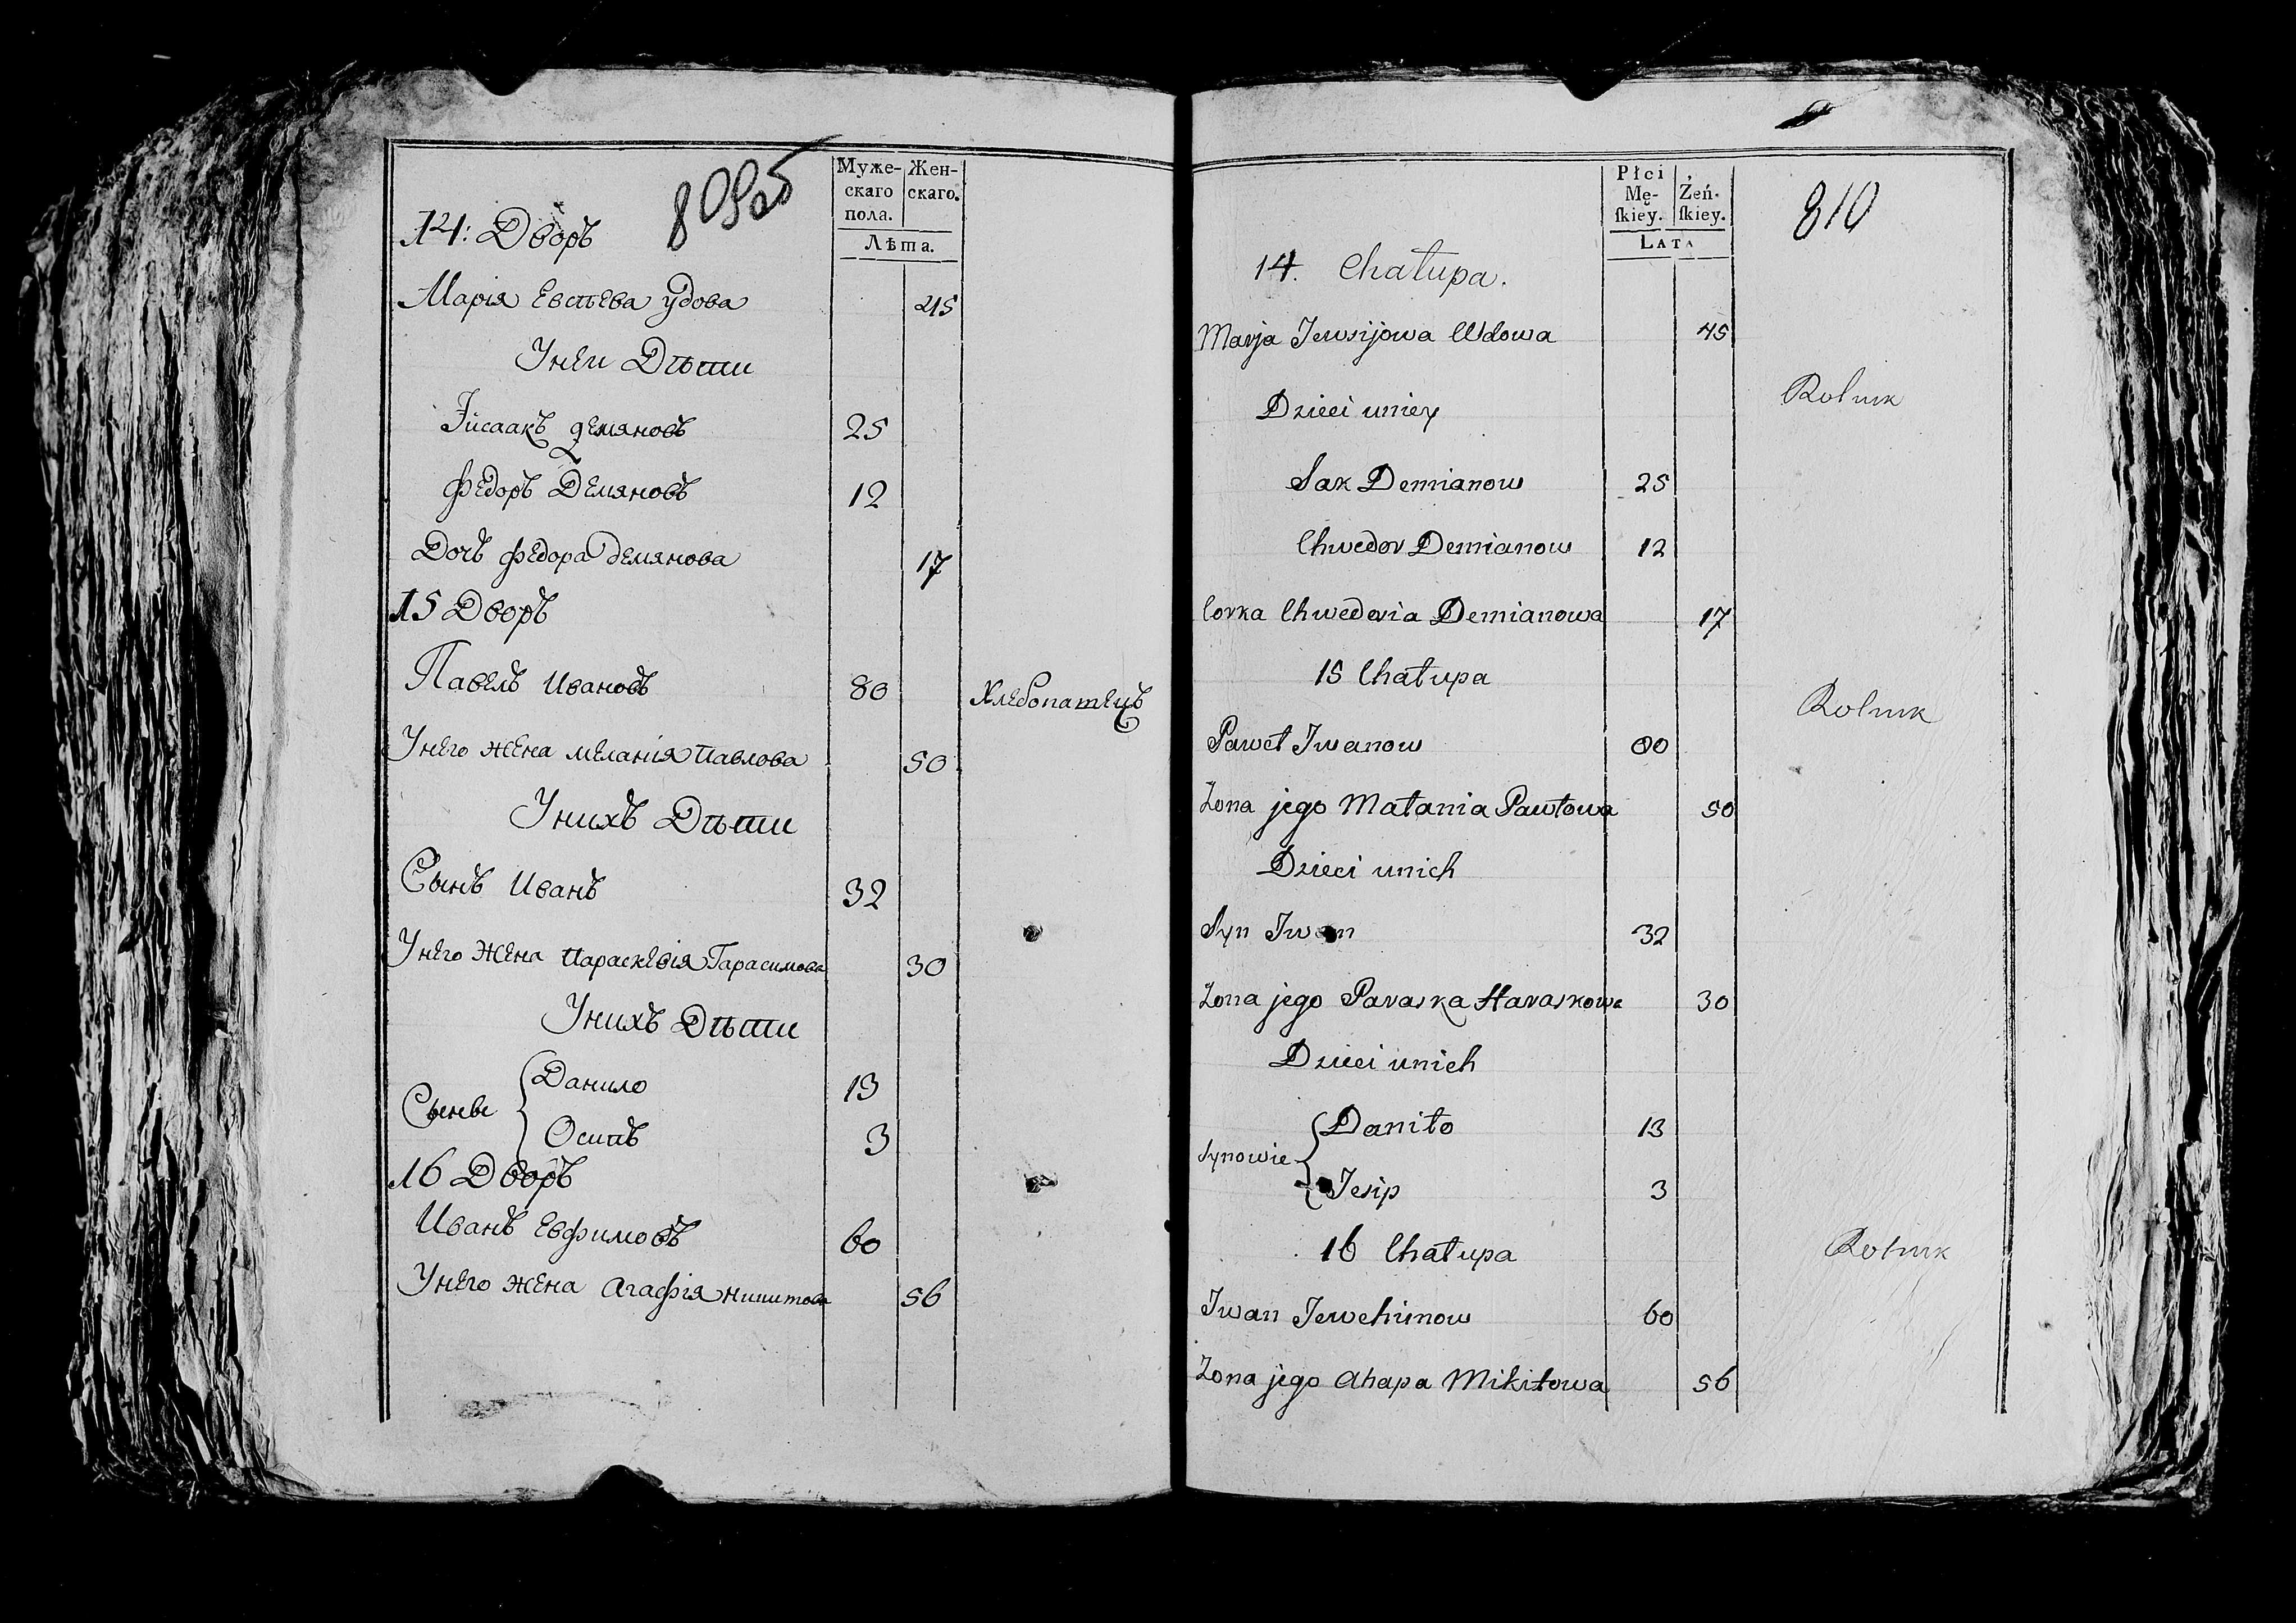 809об
Муже-
скаго
пола.
Жен-
скаго.
Лѣта.
14: Дворъ
Марія Евсѣева удова 45
Унеи Дѣти
Іисаакъ демяновъ 25
Федоръ Демяновъ 12
Дочъ федора демянова 17
15 Дворъ
Павелъ Ивановъ 80 Хлебопашецъ
Унего жена меланія павлова 50
Унихъ Дѣти
Сынъ Иванъ 32
Унего жена параскевія Гарасимова 30
Унихъ Дѣти
Сынве
Данило 13
Осипъ 3
16 Дворъ
Иванъ Евфимовъ 60
Унего жена агафія никитова 56
810
Płci
Mę-
ſkiey.
Żeń-
ſkiey.
LATA
14. Chałupa.
Marja Jewsijowa Wdowa 45
Dzieci uniey
Rolnik
Sak Demianow 25
Chwedor Demianow 12
Corka Chwedoria Demianowa 17
15 Chałupa
Rolnik
Paweł Iwanow 80
Zona jego Małania Pawłowa 50
Dzieci unich
Syn Iwan 32
Zona jego Paraska Haraskowa 30
Dzieci unich
Synowie
Daniło 13
Jesip 3
16 Chałupa
Rolnik
Iwan Jewchimow 60
Zona jego Ahapa Mikitowa 56